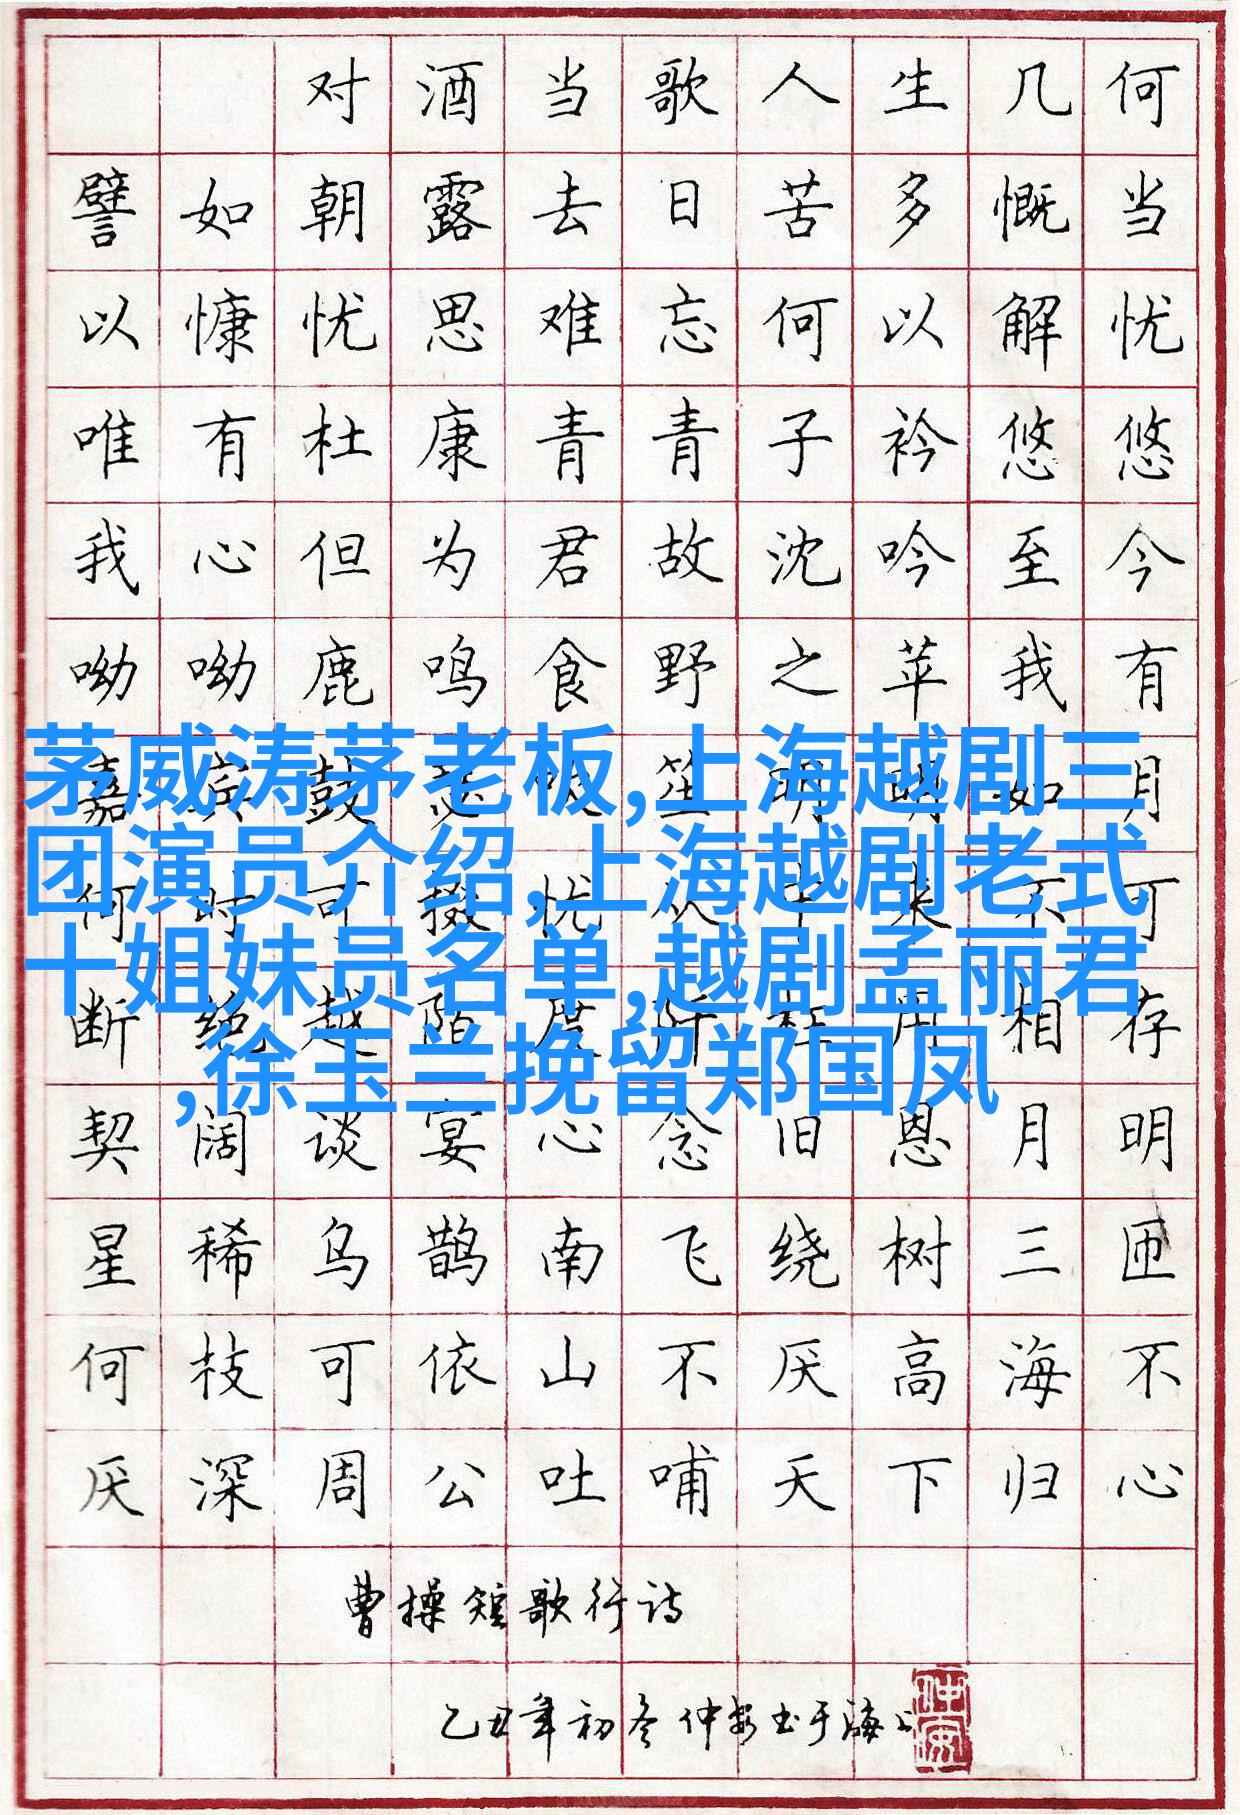 对酒当歌人生几何
譬如朝露去日苦多慨当
以慷忧思难忘何以解忧
唯有杜康青青子衿悠悠
我心但为君故沈吟至今
呦呦鹿鸣食野之苹我有
嘉宾鼓瑟吹笙明明如月
何时可掇忧从中来不可
断绝越陌度阡枉用相存
契阔谈宴心念旧恩月明
星稀乌鹊南飞绕树三匝
何枝可依山不厌高海不
厌深周公吐哺天下归心
曹操短歌行诗
乙丑年初冬仲安书于海上
仲安
茅威涛茅老板,上海越剧三
团演员介绍,上海越剧老式
十姐妹员名单,越剧孟丽君
,徐玉兰挽留郑国凤